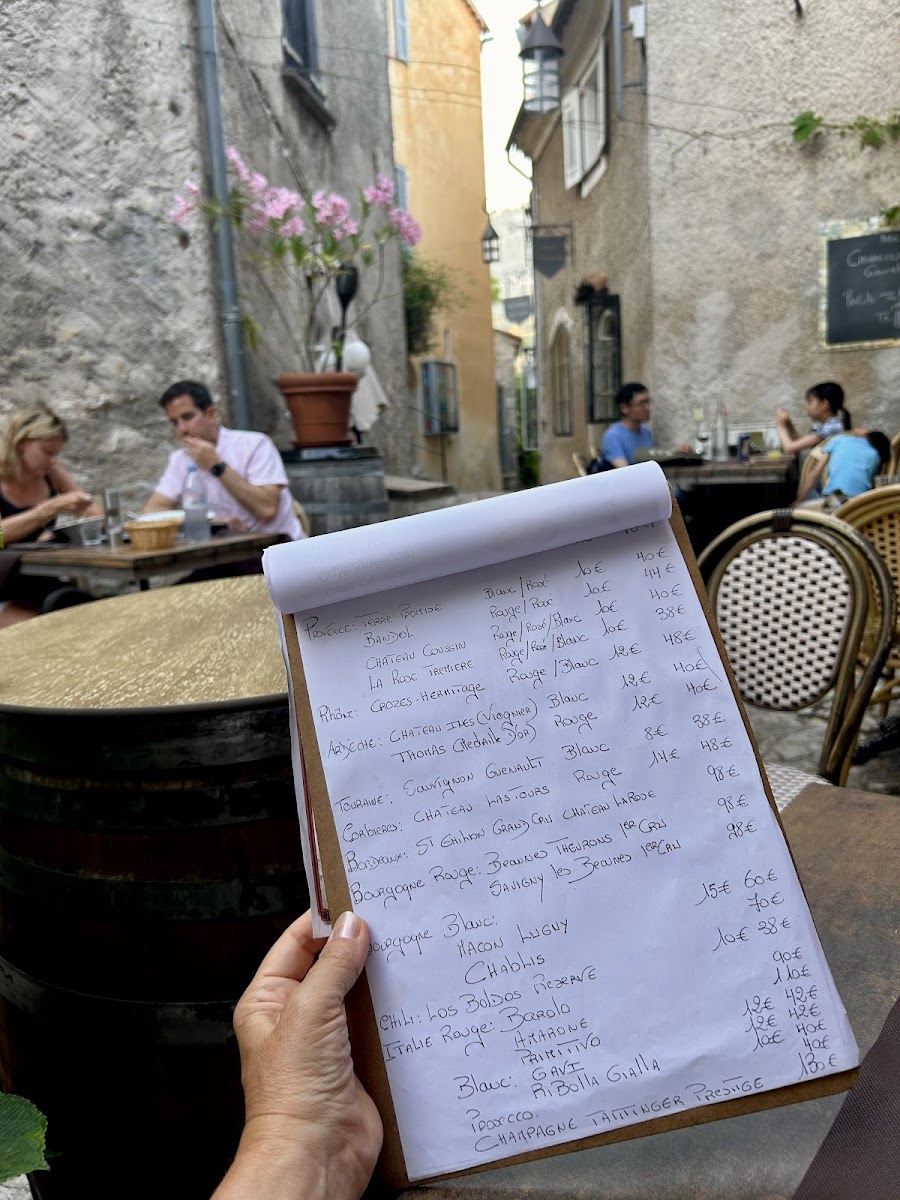 PROVENCE: TERRE PROMIDE Blanc/Rosé 10€ 40€
BANDOL Rouge/Rosé 10€ 44€
CHATEAU COUSSIN Rouge/Rosé/Blanc 10€ 40€
LA ROSE TREMIERE Rouge/Rosé/Blanc 10€ 38€
Rhône: CROZES-HERMITAGE Rouge/Blanc 12€ 48€
ARDÈCHE: CHATEAU ILES (Viognier) Blanc 12€ 40€
THOMAS (Médaille D'OR) Rouge 12€ 40€
TOURAINE: Sauvignon Guenault Blanc 8€ 38€
CORBIERES: CHÂTEAU LASTOURS Rouge 14€ 48€
BORDEAUX: ST EMILION GRAND CRU CHATEAU LAROSE 98€
Bourgogne Rouge: BEAUNES THEURONS 1er CRU 98€
SAVIGNY les BEAUNES 1er CRU 98€
Bourgogne Blanc:
MACON LUGNY 15€ 60€
CHABLIS 70€
CHILI: LOS BOLDOS RESERVE 10€ 38€
ITALIE ROUGE: BAROLO 90€
AMARONE 110€
PRIMITIVO 12€ 42€
Blanc: GAVI 12€ 42€
RIBOLLA GIALLA 10€ 40€
PROSECCO. 40€
CHAMPAGNE TAITTINGER PRESTIGE 130€